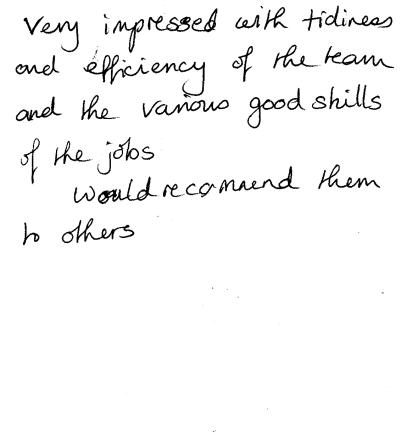 Very impressed with tidiness
and efficiency of the team
and the various good skills
of the jobs
Would recommend them
to others